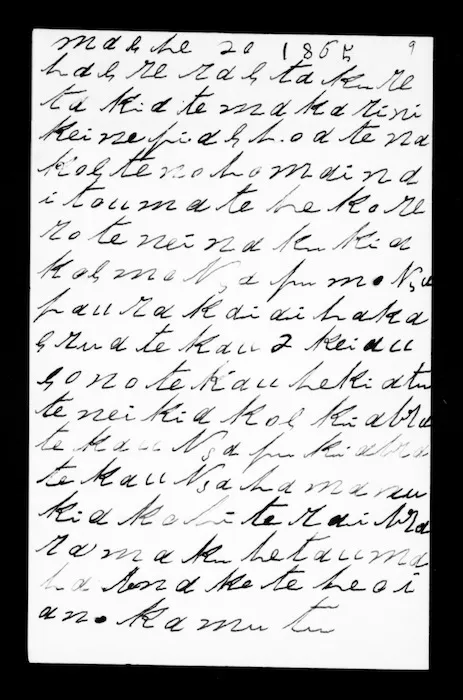 maehe 20 1865 9
haere ra e taku re
ta kia te makarini
kei nepia e hoa tena
koe te noho maina
i tou mate he kore
ro te nei na ku kia
koe mo Nga pu mo Nga
paura kaiaihaka
e rua te kau 2 kei au
e ono te kau he kiatu
tenei kia koe kia wra
te kau Nga pu kia wra
te kau Nga hamanu
kia kohi te rai wra
ra maku he tauma
ha na ke te he oi
ano ka mutu